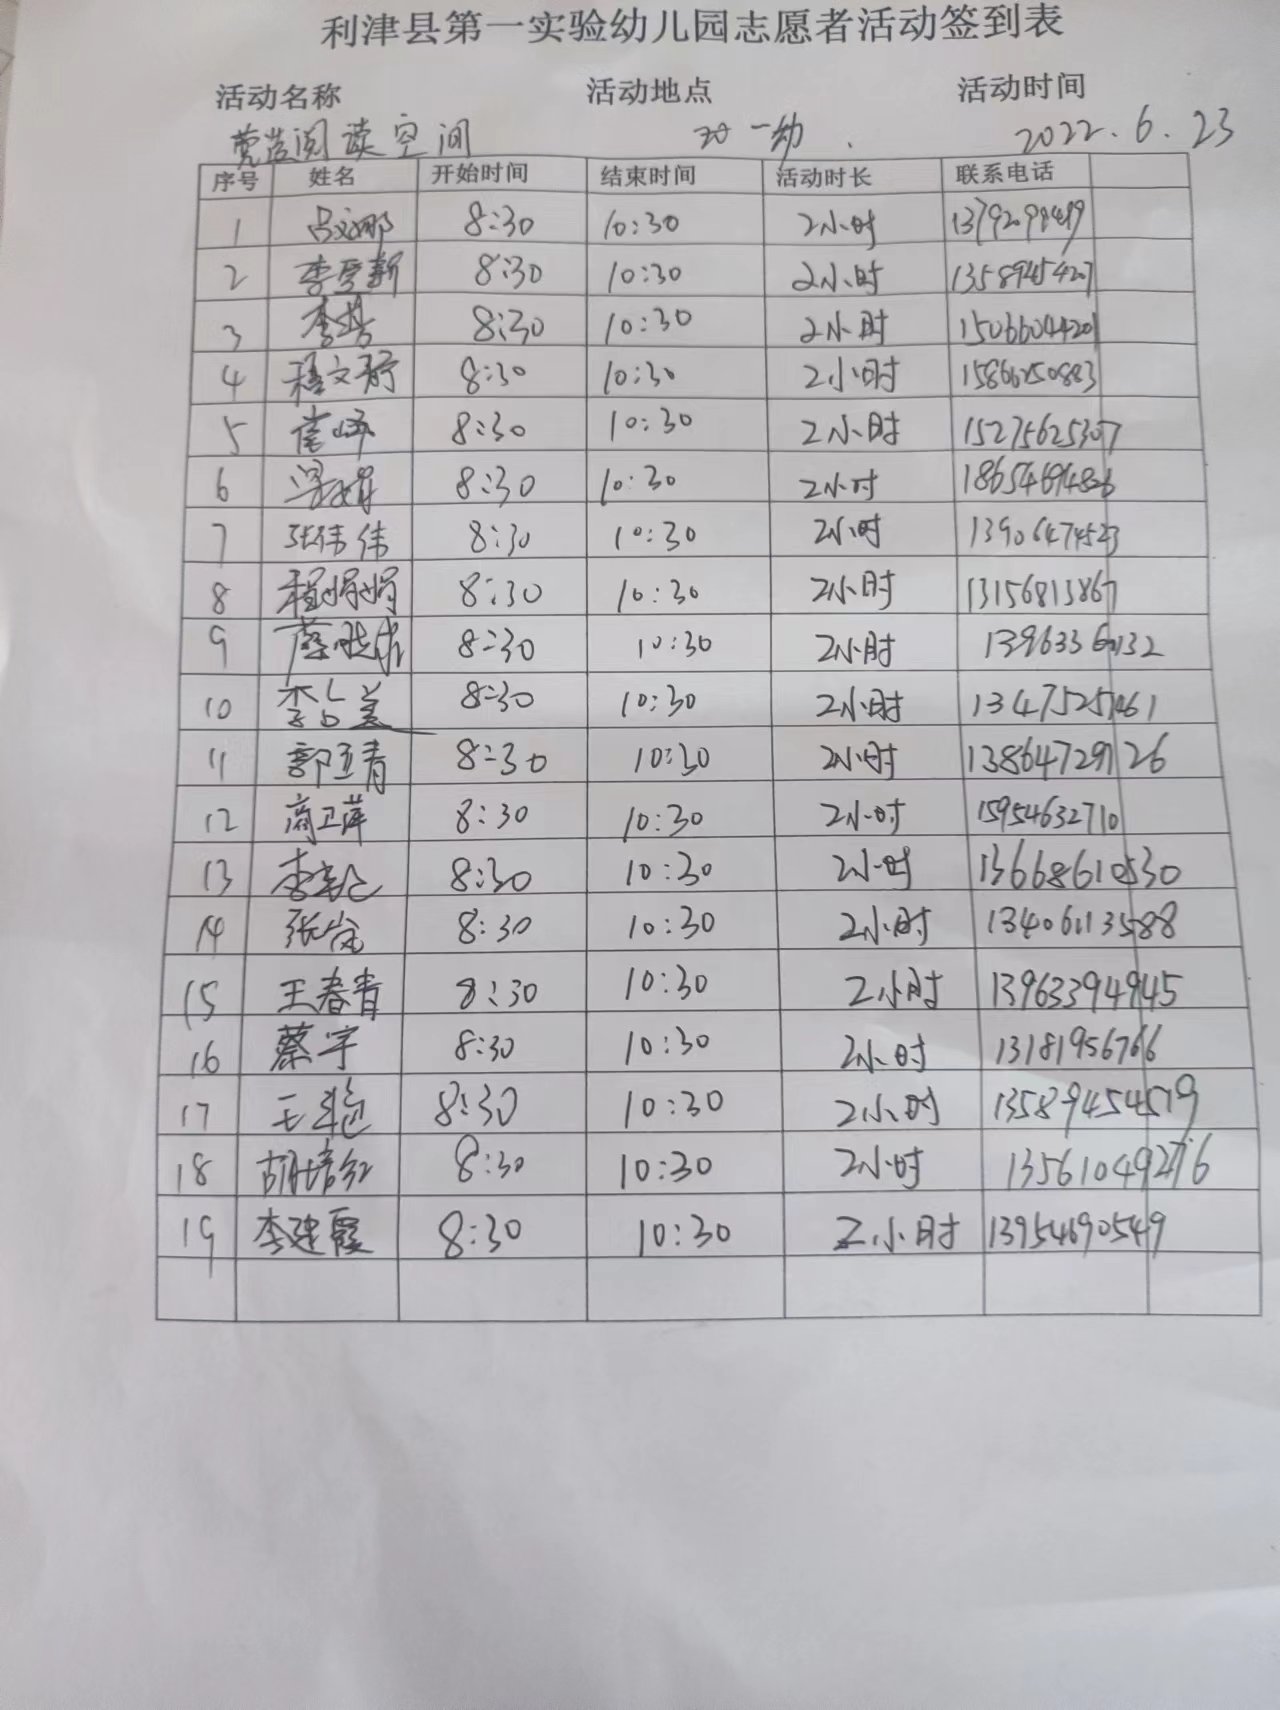 利津县第一实验幼儿园志愿者活动签到表
活动名称 活动地点 活动时间
阅读空间 一幼 2022.6.23
序号 姓名 开始时间 结束时间 活动时长 联系电话
1 8:30 10:30 2小时
2 李雪新 8:30 10:30 2小时 13589454207
3 8:30 10:30 2小时 15066044201
4 程文静 8:30 10:30 2小时
5 8:30 10:30 2小时 15275625307
6 8:30 10:30 2小时
7 张伟伟 8:30 10:30 2小时 13906474523
8 程娟娟 8:30 10:30 2小时 13156813867
9 8:30 10:30 2小时
10 8:30 10:30 2小时
11 郭亚青 8:30 10:30 2小时 13864729126
12 商卫萍 8:30 10:30 2小时 15954632710
13 8:30 10:30 2小时 13668610530
14 8:30 10:30 2小时 13406113588
15 王春青 8:30 10:30 2小时 13963394945
16 蔡宇 8:30 10:30 2小时 13181956766
17 8:30 10:30 2小时 13589454519
18 胡培红 8:30 10:30 2小时 13561049276
19 李建霞 8:30 10:30 2小时 13954690549